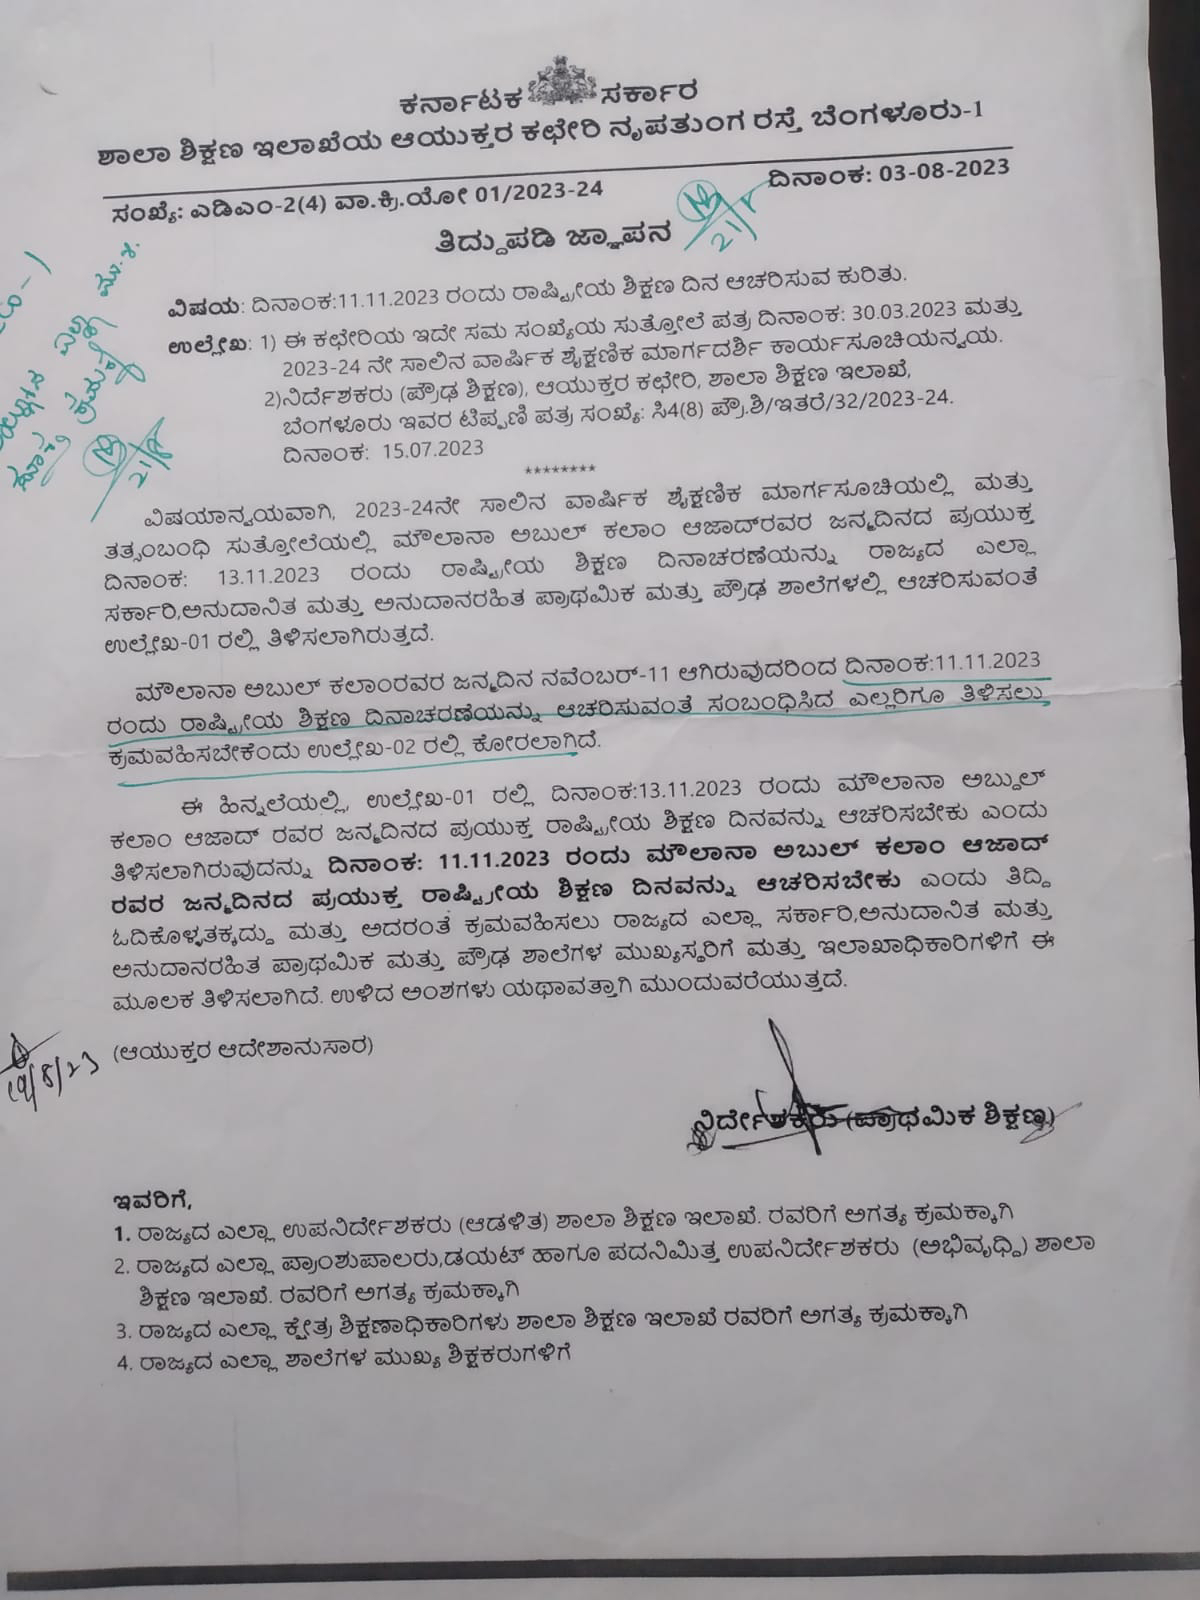 ಕರ್ನಾಟಕ ಸರ್ಕಾರ
ಶಾಲಾ ಶಿಕ್ಷಣ ಇಲಾಖೆಯ ಆಯುಕ್ತರ ಕಛೇರಿ ನೃಪತುಂಗ ರಸ್ತೆ ಬೆಂಗಳೂರು-1
ಸಂಖ್ಯೆ: ಎಡಿಎಂ-2(4) ವಾ.ಕ್ರಿ.ಯೋ 01/2023-24 ದಿನಾಂಕ: 03-08-2023
ತಿದ್ದುಪಡಿ ಜ್ಞಾಪನ
21/8
ವಿಷಯ: ದಿನಾಂಕ:11.11.2023 ರಂದು ರಾಷ್ಟ್ರೀಯ ಶಿಕ್ಷಣ ದಿನ ಆಚರಿಸುವ ಕುರಿತು.
ಉಲ್ಲೇಖ: 1) ಈ ಕಛೇರಿಯ ಇದೇ ಸಮ ಸಂಖ್ಯೆಯ ಸುತ್ತೋಲೆ ಪತ್ರ ದಿನಾಂಕ: 30.03.2023 ಮತ್ತು
2023-24 ನೇ ಸಾಲಿನ ವಾರ್ಷಿಕ ಶೈಕ್ಷಣಿಕ ಮಾರ್ಗದರ್ಶಿ ಕಾರ್ಯಸೂಚಿಯನ್ವಯ.
2)ನಿರ್ದೇಶಕರು (ಪ್ರೌಢ ಶಿಕ್ಷಣ), ಆಯುಕ್ತರ ಕಛೇರಿ, ಶಾಲಾ ಶಿಕ್ಷಣ ಇಲಾಖೆ,
ಬೆಂಗಳೂರು ಇವರ ಟಿಪ್ಪಣಿ ಪತ್ರ ಸಂಖ್ಯೆ: ಸಿ4(8) ಪ್ರೌ.ಶಿ/ಇತರೆ/32/2023-24.
ದಿನಾಂಕ: 15.07.2023
21/8
********
ವಿಷಯಾನ್ವಯವಾಗಿ, 2023-24ನೇ ಸಾಲಿನ ವಾರ್ಷಿಕ ಶೈಕ್ಷಣಿಕ ಮಾರ್ಗಸೂಚಿಯಲ್ಲಿ ಮತ್ತು
ತತ್ಸಂಬಂಧಿ ಸುತ್ತೋಲೆಯಲ್ಲಿ ಮೌಲಾನಾ ಅಬುಲ್ ಕಲಾಂ ಆಜಾದ್‌ರವರ ಜನ್ಮದಿನದ ಪ್ರಯುಕ್ತ
ದಿನಾಂಕ: 13.11.2023 ರಂದು ರಾಷ್ಟ್ರೀಯ ಶಿಕ್ಷಣ ದಿನಾಚರಣೆಯನ್ನು ರಾಜ್ಯದ ಎಲ್ಲಾ
ಸರ್ಕಾರಿ,ಅನುದಾನಿತ ಮತ್ತು ಅನುದಾನರಹಿತ ಪ್ರಾಥಮಿಕ ಮತ್ತು ಪ್ರೌಢ ಶಾಲೆಗಳಲ್ಲಿ ಆಚರಿಸುವಂತೆ
ಉಲ್ಲೇಖ-01 ರಲ್ಲಿ ತಿಳಿಸಲಾಗಿರುತ್ತದೆ.
ಮೌಲಾನಾ ಅಬುಲ್ ಕಲಾಂರವರ ಜನ್ಮದಿನ ನವೆಂಬರ್-11 ಆಗಿರುವುದರಿಂದ ದಿನಾಂಕ:11.11.2023
ರಂದು ರಾಷ್ಟ್ರೀಯ ಶಿಕ್ಷಣ ದಿನಾಚರಣೆಯನ್ನು ಆಚರಿಸುವಂತೆ ಸಂಬಂಧಿಸಿದ ಎಲ್ಲರಿಗೂ ತಿಳಿಸಲು
ಕ್ರಮವಹಿಸಬೇಕೆಂದು ಉಲ್ಲೇಖ-02 ರಲ್ಲಿ ಕೋರಲಾಗಿದೆ.
ಈ ಹಿನ್ನಲೆಯಲ್ಲಿ, ಉಲ್ಲೇಖ-01 ರಲ್ಲಿ ದಿನಾಂಕ:13.11.2023 ರಂದು ಮೌಲಾನಾ ಅಬ್ದುಲ್
ಕಲಾಂ ಆಜಾದ್ ರವರ ಜನ್ಮದಿನದ ಪ್ರಯುಕ್ತ ರಾಷ್ಟ್ರೀಯ ಶಿಕ್ಷಣ ದಿನವನ್ನು ಆಚರಿಸಬೇಕು ಎಂದು
ತಿಳಿಸಲಾಗಿರುವುದನ್ನು ದಿನಾಂಕ: 11.11.2023 ರಂದು ಮೌಲಾನಾ ಅಬುಲ್ ಕಲಾಂ ಆಜಾದ್
ರವರ ಜನ್ಮದಿನದ ಪ್ರಯುಕ್ತ ರಾಷ್ಟ್ರೀಯ ಶಿಕ್ಷಣ ದಿನವನ್ನು ಆಚರಿಸಬೇಕು ಎಂದು ತಿದ್ದಿ
ಓದಿಕೊಳ್ಳತಕ್ಕದ್ದು ಮತ್ತು ಅದರಂತೆ ಕ್ರಮವಹಿಸಲು ರಾಜ್ಯದ ಎಲ್ಲಾ ಸರ್ಕಾರಿ,ಅನುದಾನಿತ ಮತ್ತು
ಅನುದಾನರಹಿತ ಪ್ರಾಥಮಿಕ ಮತ್ತು ಪ್ರೌಢ ಶಾಲೆಗಳ ಮುಖ್ಯಸ್ಥರಿಗೆ ಮತ್ತು ಇಲಾಖಾಧಿಕಾರಿಗಳಿಗೆ ಈ
ಮೂಲಕ ತಿಳಿಸಲಾಗಿದೆ. ಉಳಿದ ಅಂಶಗಳು ಯಥಾವತ್ತಾಗಿ ಮುಂದುವರೆಯುತ್ತದೆ.
(ಆಯುಕ್ತರ ಆದೇಶಾನುಸಾರ)
19/8/23
ನಿರ್ದೇಶಕರು (ಪ್ರಾಥಮಿಕ ಶಿಕ್ಷಣ)
ಇವರಿಗೆ,
1. ರಾಜ್ಯದ ಎಲ್ಲಾ ಉಪನಿರ್ದೇಶಕರು (ಆಡಳಿತ) ಶಾಲಾ ಶಿಕ್ಷಣ ಇಲಾಖೆ. ರವರಿಗೆ ಅಗತ್ಯ ಕ್ರಮಕ್ಕಾಗಿ
2. ರಾಜ್ಯದ ಎಲ್ಲಾ ಪ್ರಾಂಶುಪಾಲರು,ಡಯಟ್ ಹಾಗೂ ಪದನಿಮಿತ್ತ ಉಪನಿರ್ದೇಶಕರು (ಅಭಿವೃಧ್ದಿ) ಶಾಲಾ
ಶಿಕ್ಷಣ ಇಲಾಖೆ. ರವರಿಗೆ ಅಗತ್ಯ ಕ್ರಮಕ್ಕಾಗಿ
3. ರಾಜ್ಯದ ಎಲ್ಲಾ ಕ್ಷೇತ್ರ ಶಿಕ್ಷಣಾಧಿಕಾರಿಗಳು ಶಾಲಾ ಶಿಕ್ಷಣ ಇಲಾಖೆ ರವರಿಗೆ ಅಗತ್ಯ ಕ್ರಮಕ್ಕಾಗಿ
4. ರಾಜ್ಯದ ಎಲ್ಲಾ ಶಾಲೆಗಳ ಮುಖ್ಯ ಶಿಕ್ಷಕರುಗಳಿಗೆ